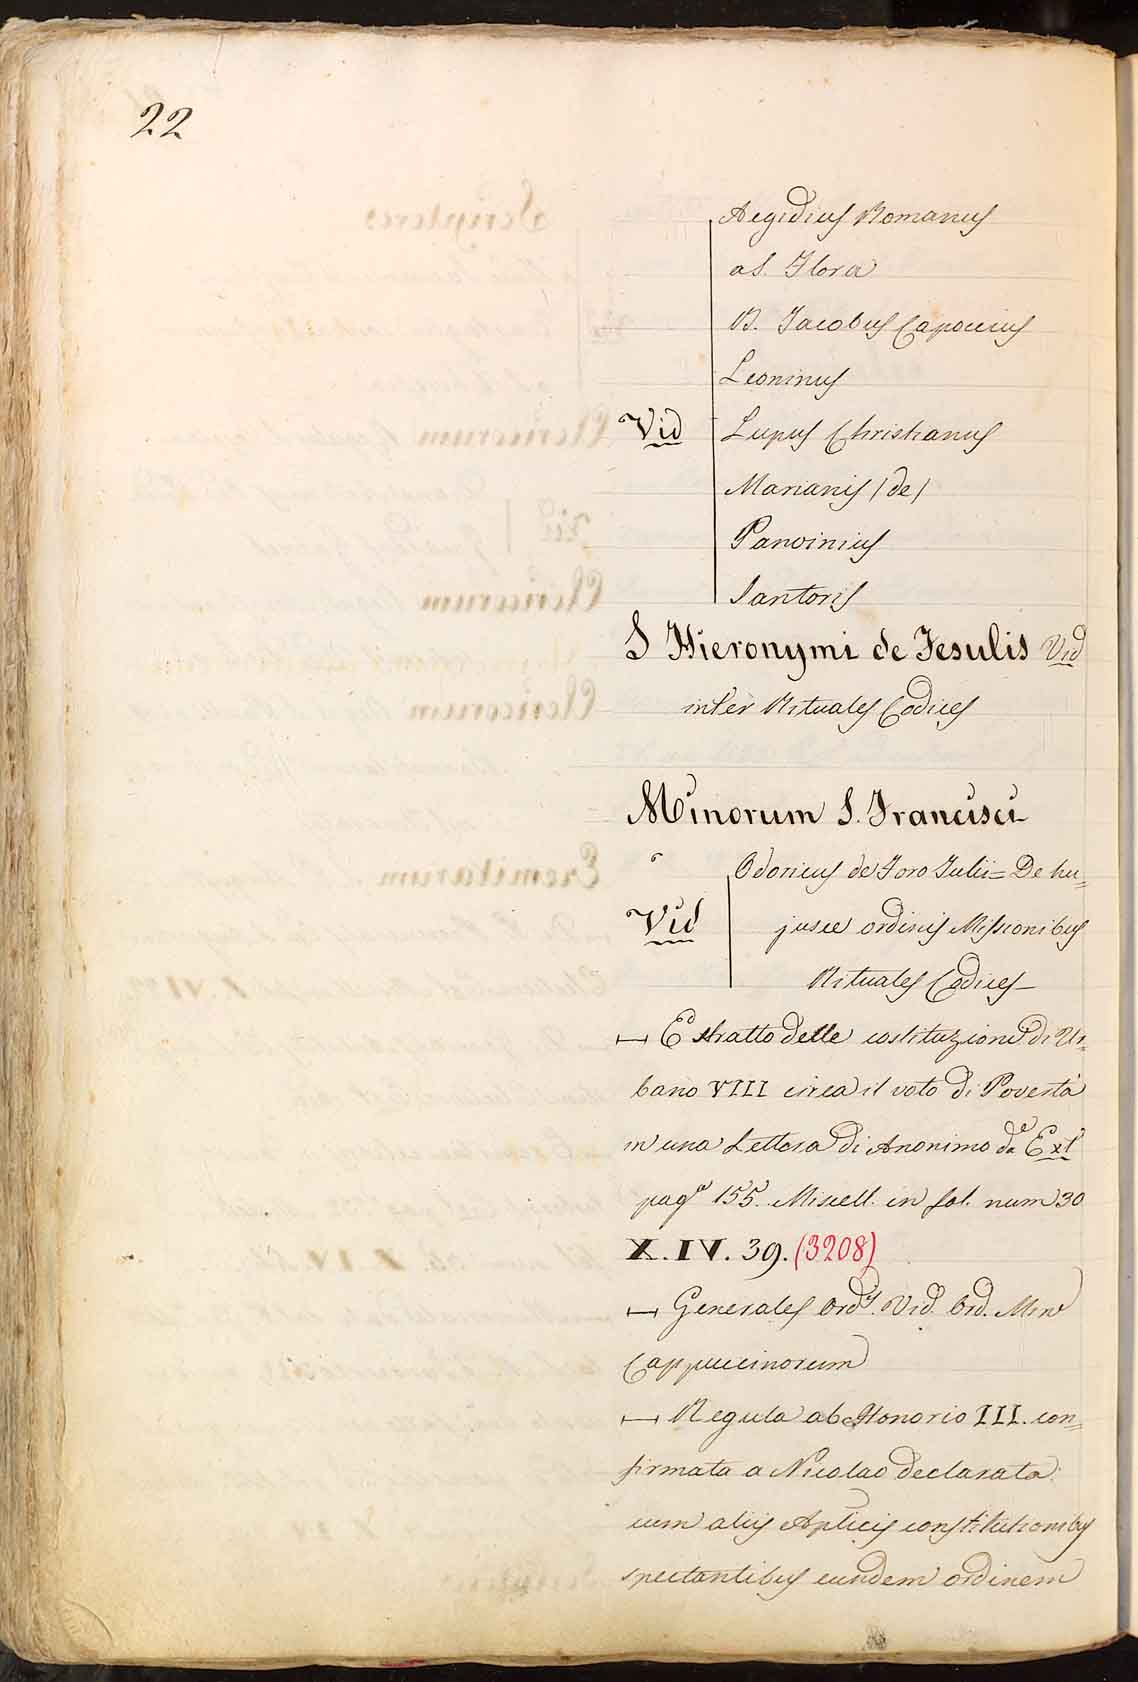 22
Aegidius Romanus
as. Flora
B. Jacobus Capoccius
Leoninus
Vid Lupus Christianus
Marianis (de)
Panvinius
Santoris
S Hieronymi de Fesulis Vid
inter Rituales Codices
Minorum S. Francisci
Odoricus de Foro Julii = De hu=
Vid jusce ordinis Missionibus
Rituales Codices
Estratto delle costituzioni di Ur=
bano VIII circa il voto di Povertà
in una Lettera di Anonimo da Ext
pagª 155. Miscell. in fol. num 30
X. IV. 39. (3208)
Generales Ordˢ. Vid. Ord. Min
Cappuccinorum
Regula ab Honorio III. con=
firmata a Nicolao declarata
cum aliis Aplicis constitutionibus
spectantibus eundem ordinem